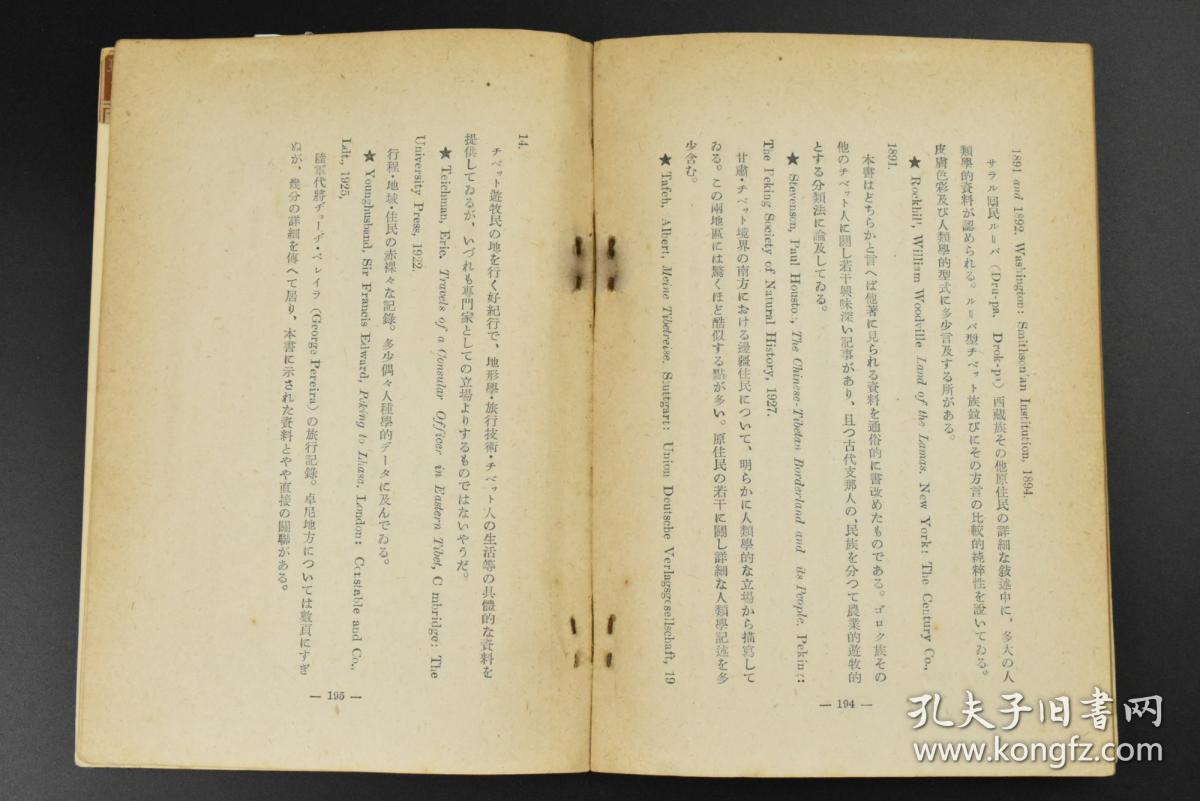 1891 and 1892. Washington: Smithson'an Institution, 1894.
サラル回民ルーバ (Dru-pa, Drok-pa) 西藏族その他原住民の詳細な敍述中に、多大の人
類學的資料が認められる。ルーバ型チベット族竝びにその方言の比較的純粹性を說いてゐる。
皮膚色彩及び人類學的型式に多少言及する所がある。
★ Rockhil', William Woodville Land of the Lamas. New York: The Century Co.,
1891.
本書はどちらかと言へば他著に見られる資料を通俗的に書改めたものである。ゴロク族その
他のチベット人に關し若干興味深い記事があり、且つ古代支那人の、民族を分つて農業的遊牧的
とする分類法に論及してゐる。
★ Stevenson, Paul Houston, The Chinese-Tibetan Borderland and its People. Peking:
The Peking Society of Natural History, 1927.
甘肅・チベット境界の南方における邊疆住民について、明らかに人類學的な立場から描寫して
ゐる。この兩地區には驚くほど酷似する點が多い。原住民の若干に關し詳細な人類學記述を多
少含む。
★ Tafeh, Albert, Meine Tibetreise. Stuttgart: Union Deutsche Verlagsgesellschaft, 19
— 194 —
14.
チベット遊牧民の地を行く好紀行で、地形學・旅行技術・チベット人の生活等の具體的な資料を
提供してゐるが、いづれも專門家としての立場よりするものではないやうだ。
★ Teichman, Eric, Travels of a Consular Officer in Eastern Tibet, C mbridge: The
University Press, 1922.
行程・地域・住民の赤裸々な記錄。多少偶々人種學的データに及んでゐる。
★ Younghusband, Sir Francis Edward, Peking to Lhasa. London: Constable and Co.,
Ldt., 1925,
陸軍代將ヂョーヂ・ペレイラ (George Pereira) の旅行記錄。卓尼地方については數頁にすぎ
ぬが、幾分の詳細を傳へて居り、本書に示された資料とやや直接の關聯がある。
— 195 —
孔夫子旧书网
www.kongfz.com